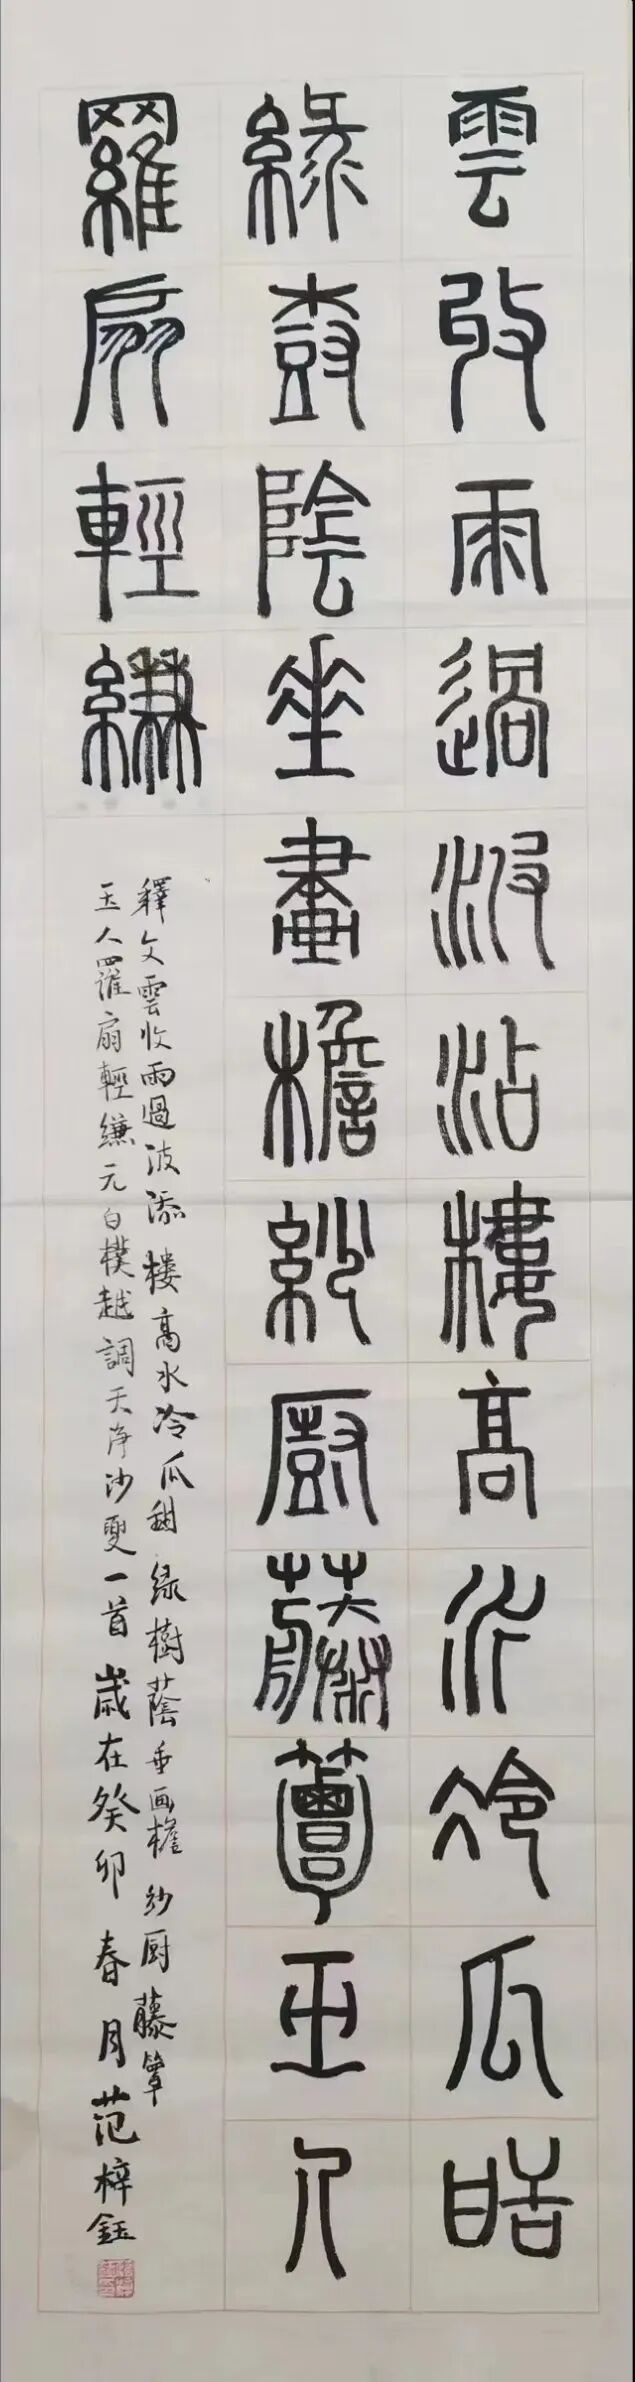 雲收雨過波添樓高水冷瓜甜
綠樹陰垂畫檐紗厨藤簟玉人
羅扇輕縑
釋文雲收雨過波添樓高水冷瓜甜绿樹蔭垂画檐紗厨藤簟
玉人羅扇輕縑元白樸越調天净沙夏一首歲在癸卯春月范梓鈺